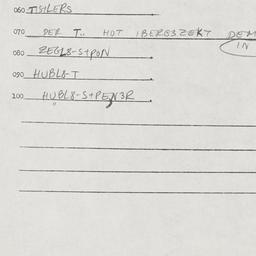 060 TISHLERS
070 DER T.. HOT IBERGEZEKT DEM
IN
080 ZEGL8-S+PON
090 HUBL8-T
100 HUBL8-S+PEN3R